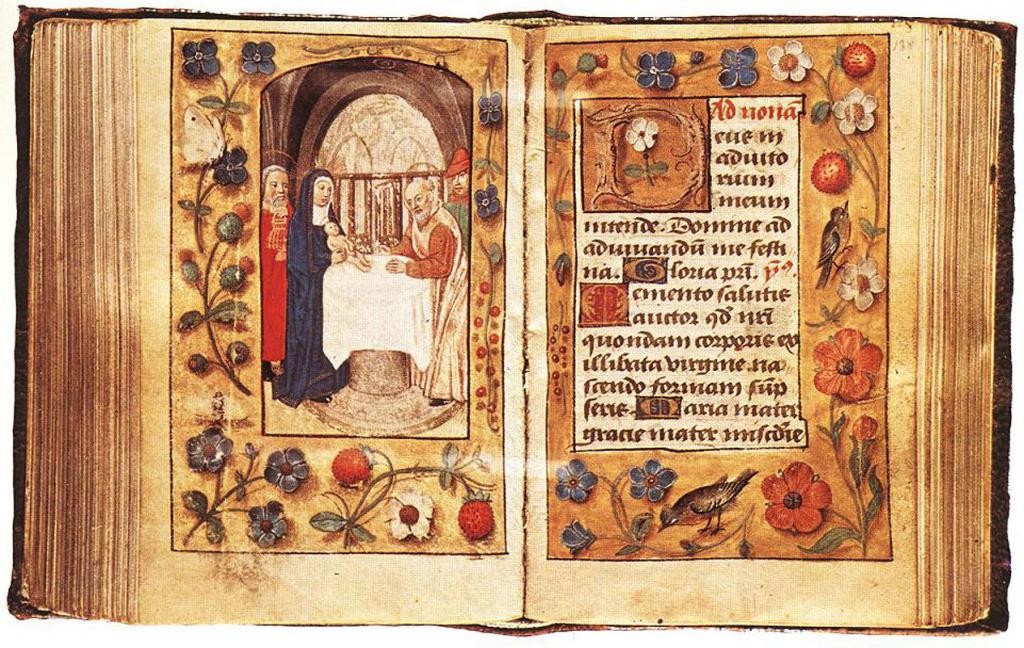 Ad nonā
eus in
adiuto
rium
meum
intende. Domine ad
adiuuandū me festi
na. Gloria pr̄i. ps̄
Memento salutis
auctor qd̄ nr̄i
quondam corporis ex
illibata virgine na
scendo formam sūp
seris. Maria mater
gracie mater miscd̄ie